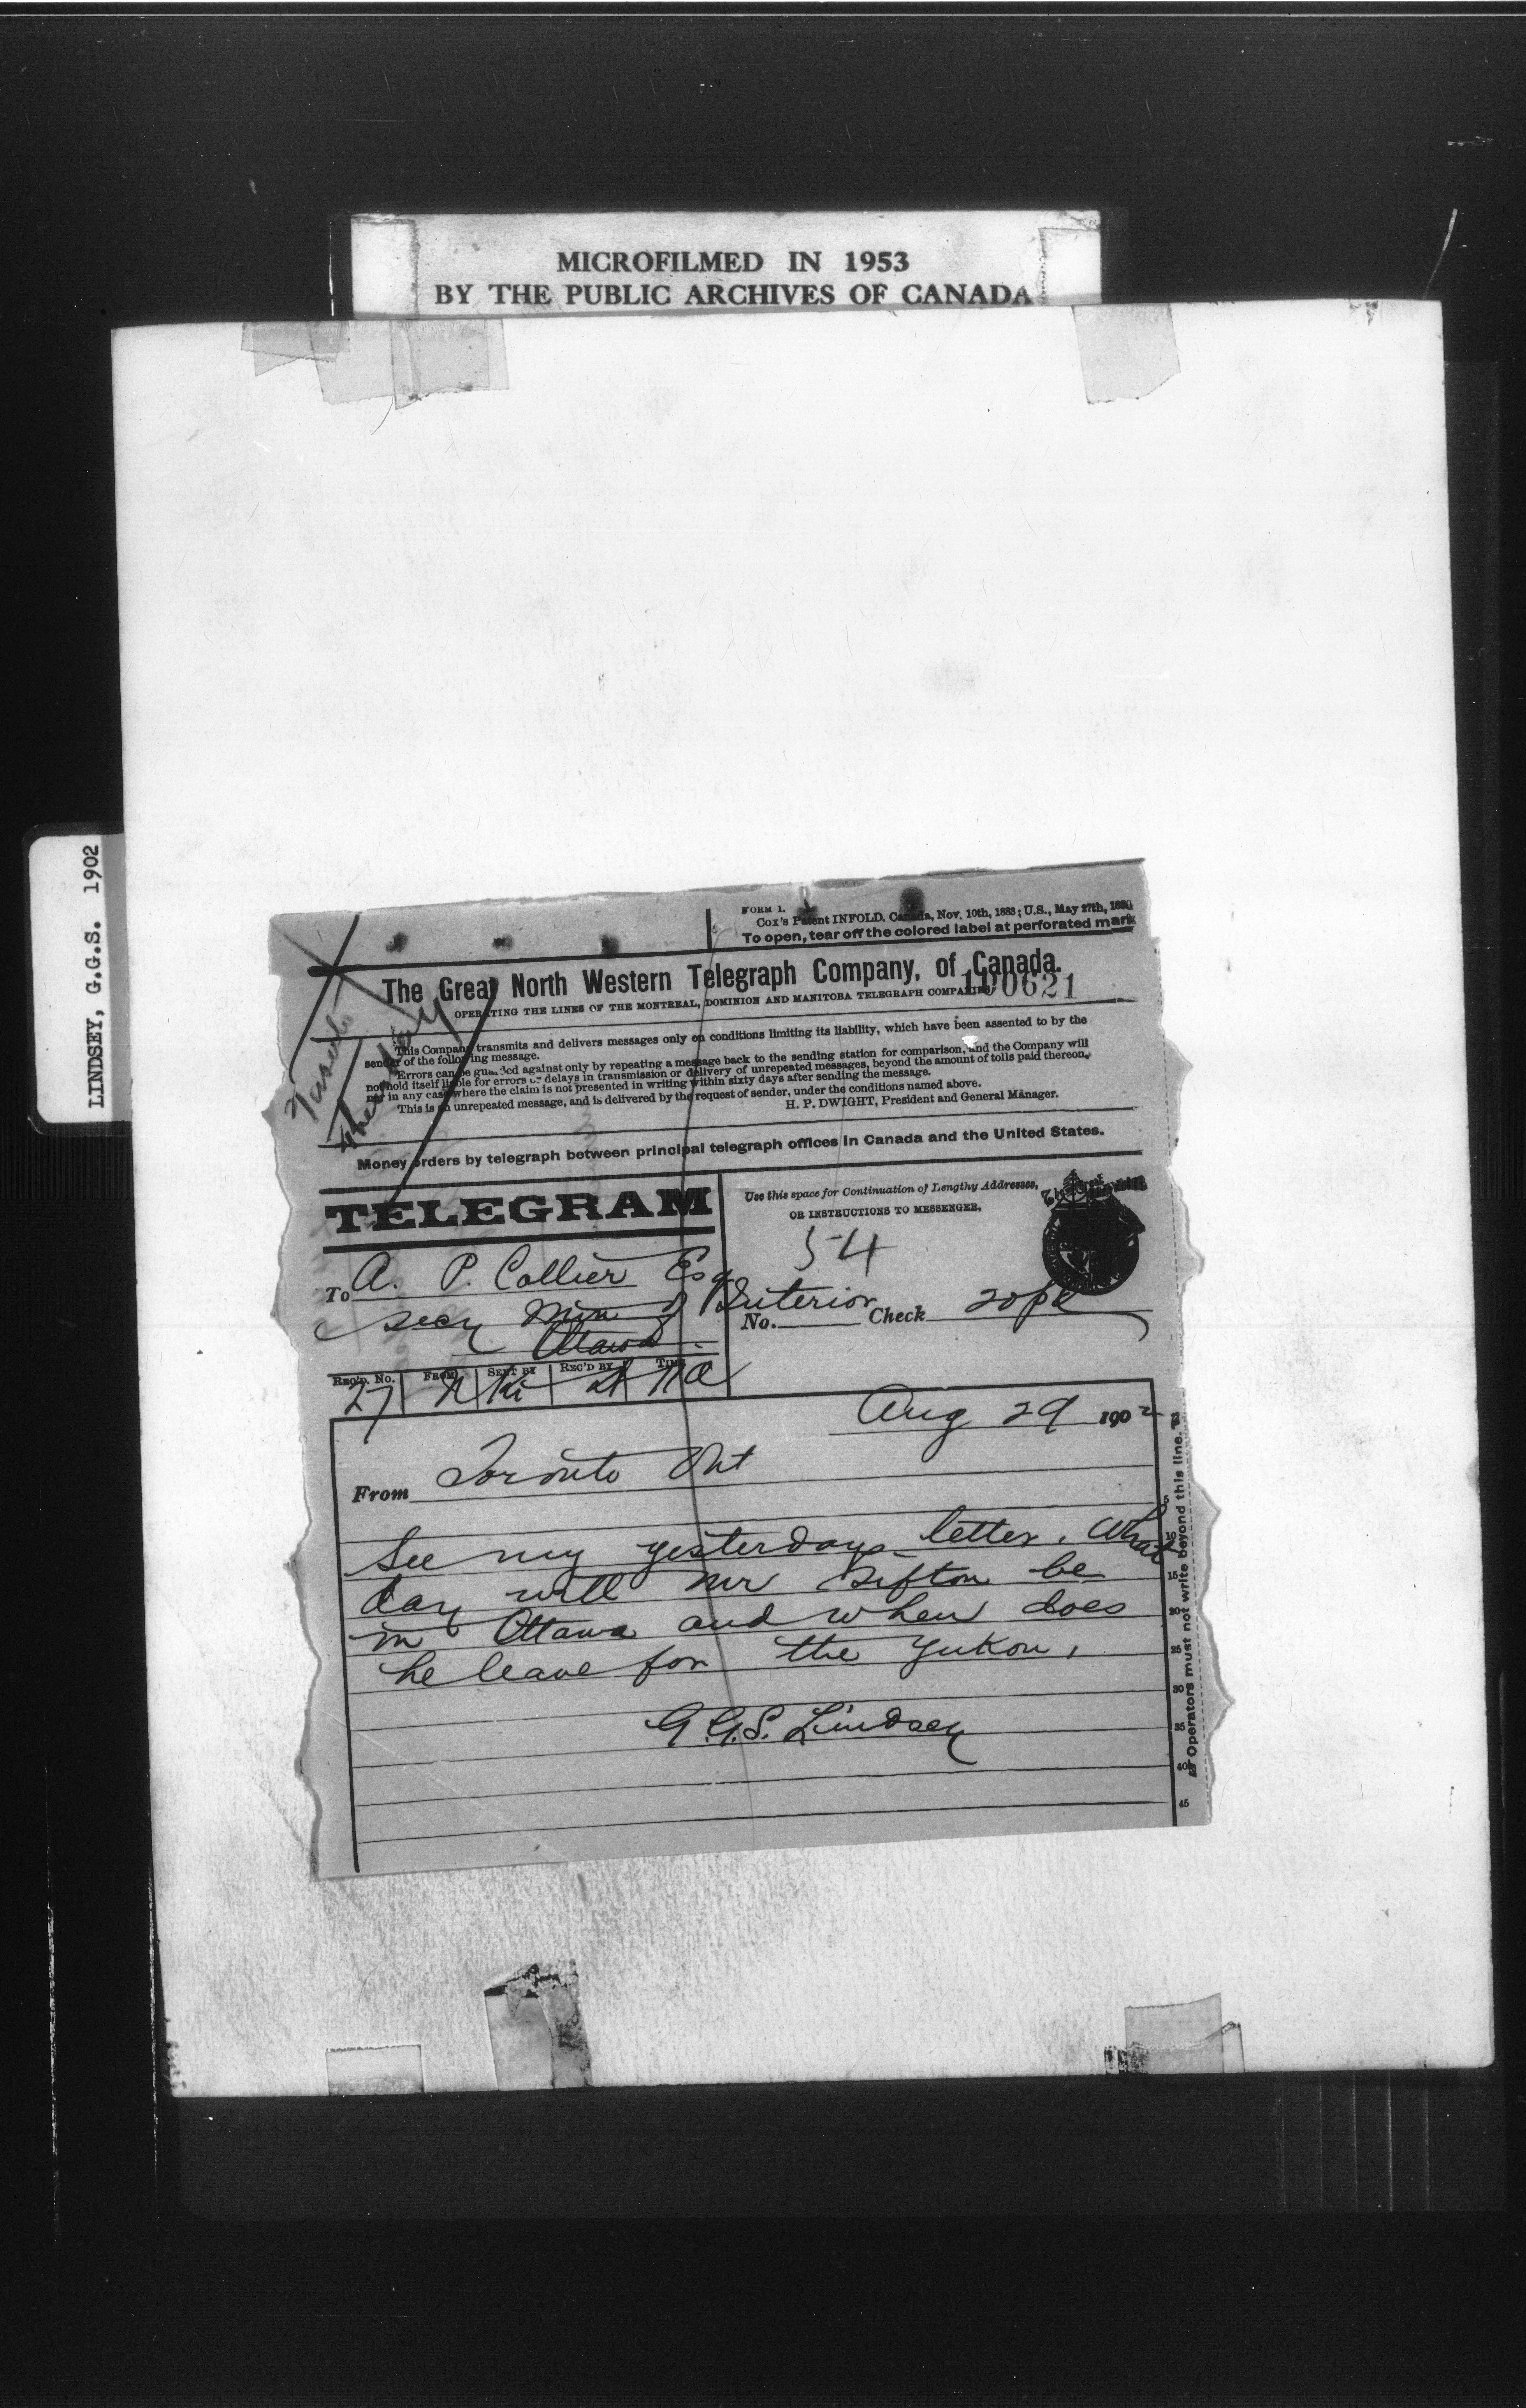 MICROFILMED IN 1953
BY THE PUBLIC ARCHIVES OF CANADA
LINDSEY, G.G.S. 1902
FORM 1.
Cox's Patent INFOLD. Canada, Nov. 10th, 1883; U.S., May 27th, 1884
To open, tear off the colored label at perforated mark
The Great North Western Telegraph Company, of Canada.
OPERATING THE LINES OF THE MONTREAL, DOMINION AND MANITOBA TELEGRAPH COMPANIES
100621
This Company transmits and delivers messages only on conditions limiting its liability, which have been assented to by the
sender of the following message.
Errors can be guarded against only by repeating a message back to the sending station for comparison, and the Company will
not hold itself liable for errors or delays in transmission or delivery of unrepeated messages, beyond the amount of tolls paid thereon,
nor in any case where the claim is not presented in writing within sixty days after sending the message.
This is an unrepeated message, and is delivered by the request of sender, under the conditions named above.
H. P. DWIGHT, President and General Manager.
Money orders by telegraph between principal telegraph offices in Canada and the United States.
TELEGRAM
Use this space for Continuation of Lengthy Addresses,
OR INSTRUCTIONS TO MESSENGER,
54
To A. P. Collier Esq
Secy Min of Interior
Ottawa
No. Check 20pd
Rec'd. No. From Sent by Rec'd by Time
27
Aug 29 1902
From Toronto Ont
See my yesterdays letter. What
day will Mr Sifton be
in Ottawa and when does
he leave for the Yukon,
G.G.S. Lindsey
5
10
15
20
25
30
35
40
45
Operators must not write beyond this line.